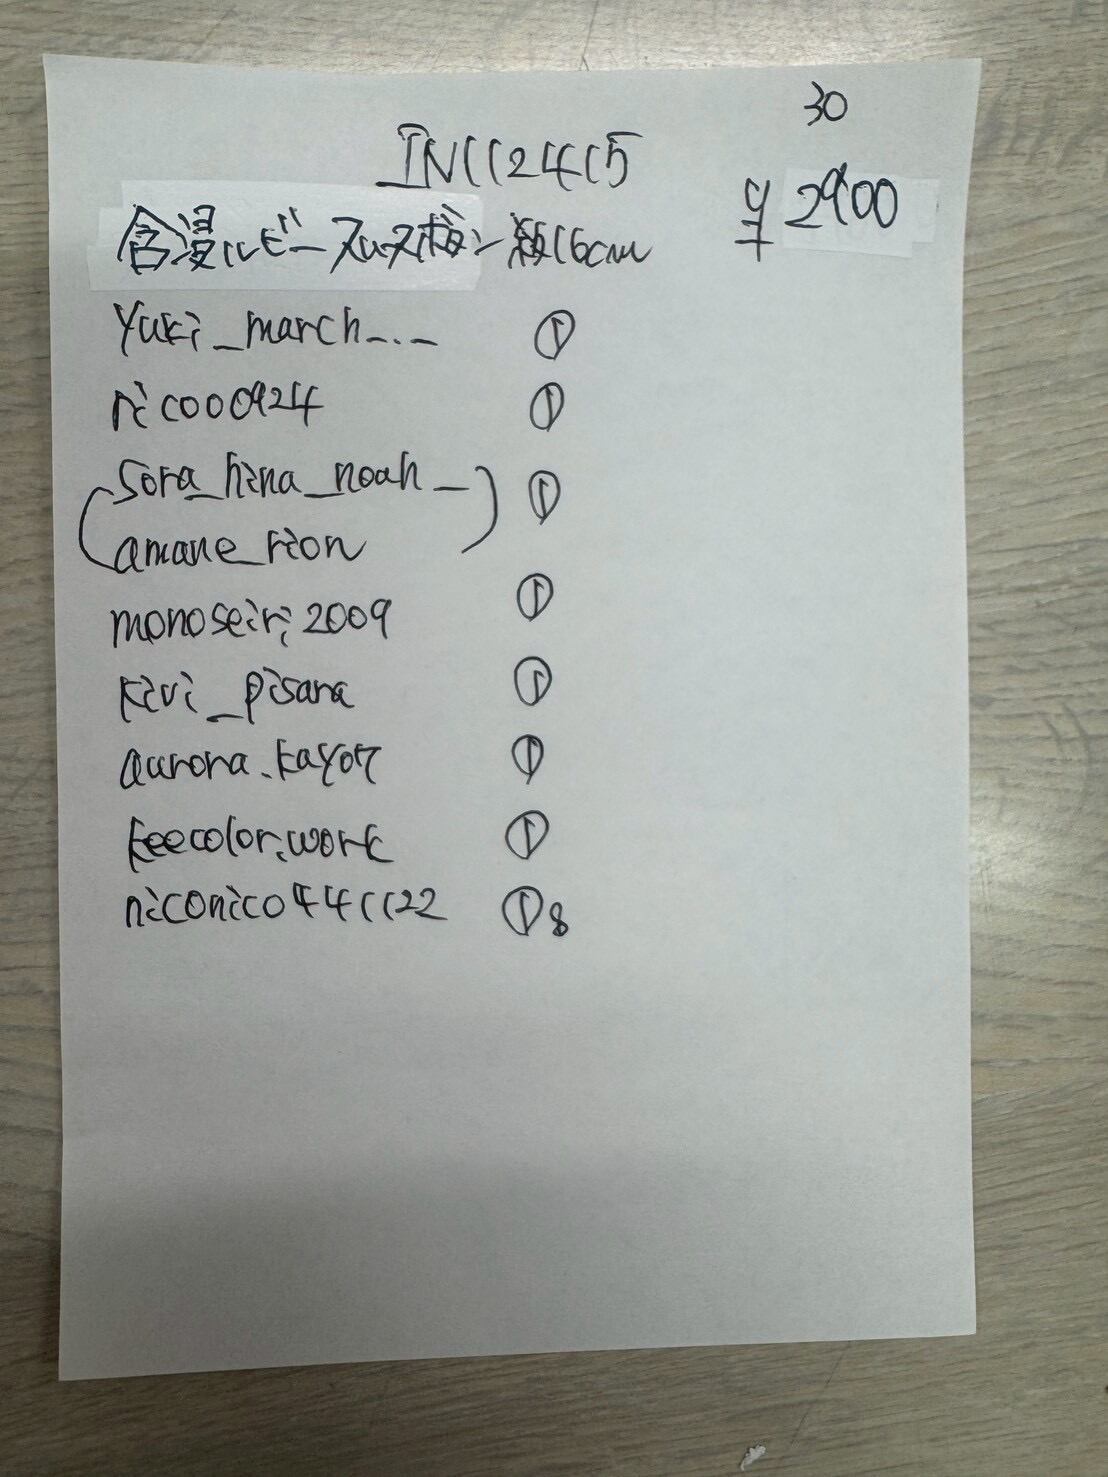 30
IN112415
¥2900
含浸ルビー 約16cm
yuki_march_._
rico00924
(sora_hina_noah_) ①
amane_rion
monoseiri2009 ①
kivi_pisara ①
aurora.kayo7 ①
keecolor.work ①
niconico441122 ①8